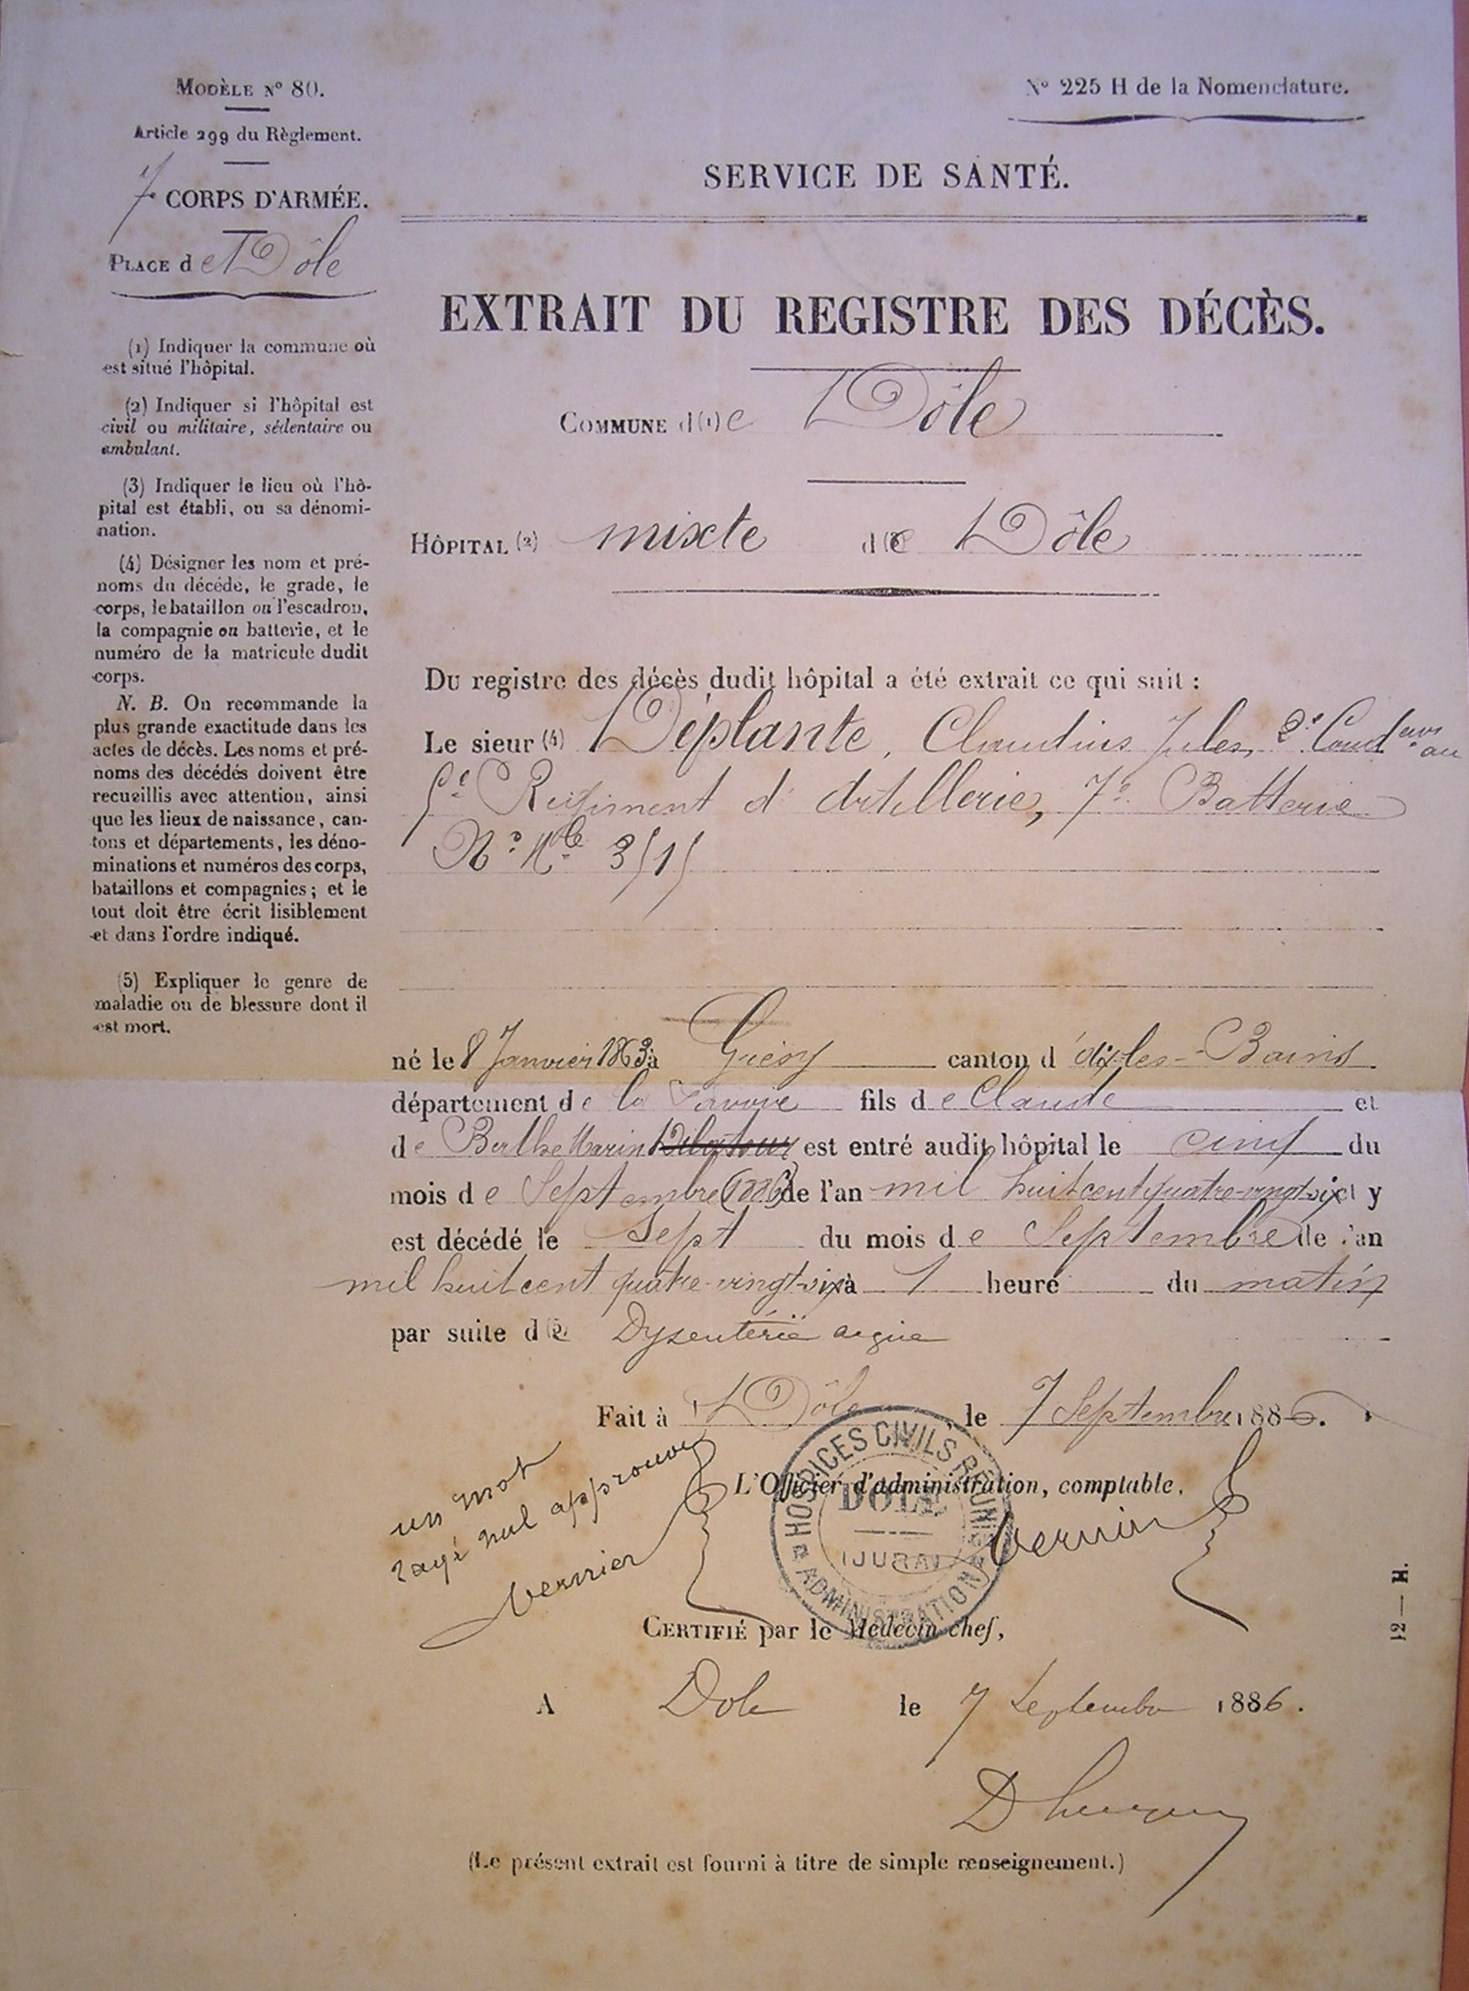 Modèle N° 80.
Article 299 du Règlement.
7e CORPS D'ARMÉE.
Place de Dôle
(1) Indiquer la commune où
est situé l'hôpital.
(2) Indiquer si l'hôpital est
civil ou militaire, sédentaire ou
ambulant.
(3) Indiquer le lieu où l'hô-
pital est établi, ou sa dénomi-
nation.
(4) Désigner les nom et pré-
noms du décédé, le grade, le
corps, le bataillon ou l'escadron,
la compagnie ou batterie, et le
numéro de la matricule dudit
corps.
N. B. On recommande la
plus grande exactitude dans les
actes de décès. Les noms et pré-
noms des décédés doivent être
recueillis avec attention, ainsi
que les lieux de naissance, can-
tons et départements, les déno-
minations et numéros des corps,
bataillons et compagnies; et le
tout doit être écrit lisiblement
et dans l'ordre indiqué.
(5) Expliquer le genre de
maladie ou de blessure dont il
est mort.
N° 225 H de la Nomenclature.
SERVICE DE SANTÉ.
EXTRAIT DU REGISTRE DES DÉCÈS.
Commune d(1)e Dôle
Hôpital (2) mixte de Dôle
Du registre des décès dudit hôpital a été extrait ce qui suit :
Le sieur (4) Déplante, Claudius Jules, 2e Conde au
5e Régiment d'Artillerie, 7e Batterie
No Mle 3515
né le 8 Janvier 1863 à Grésy canton d'Aix-les-Bains
département de la Savoie fils de Claude et
de Berthe Marin est entré audit hôpital le cinq du
mois de Septembre (1886) de l'an mil huit cent quatre-vingt-six et y
est décédé le Sept du mois de Septembre de l'an
mil huit cent quatre-vingt-six à 1 heure du matin
par suite de Dysentérie aigüe
Fait à Dôle, le 7 Septembre 1886.
L'Officier d'administration, comptable,
un mot
rayé nul approuvé
Vernier
Vernier
HOSPICES CIVILS RÉUNIS
DOLE
(JURA)
ADMINISTRATION
Certifié par le Médecin chef,
A Dole le 7 Septembre 1886.
(Le présent extrait est fourni à titre de simple renseignement.)
12—H.